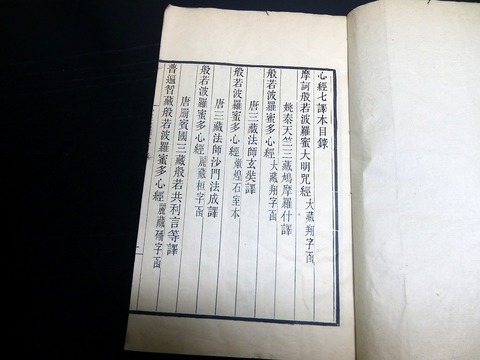 心經七譯本目錄
摩訶般若波羅蜜大明咒經大藏翔字函
姚秦天竺三藏鳩摩羅什譯
般若波羅蜜多心經大藏翔字函
唐三藏法師玄奘譯
般若波羅蜜多心經燉煌石室本
唐三藏法師沙門法成譯
般若波羅蜜多心經麗藏桓字函
唐罽賓國三藏般若共利言等譯
普遍智藏般若波羅蜜多心經麗藏字函